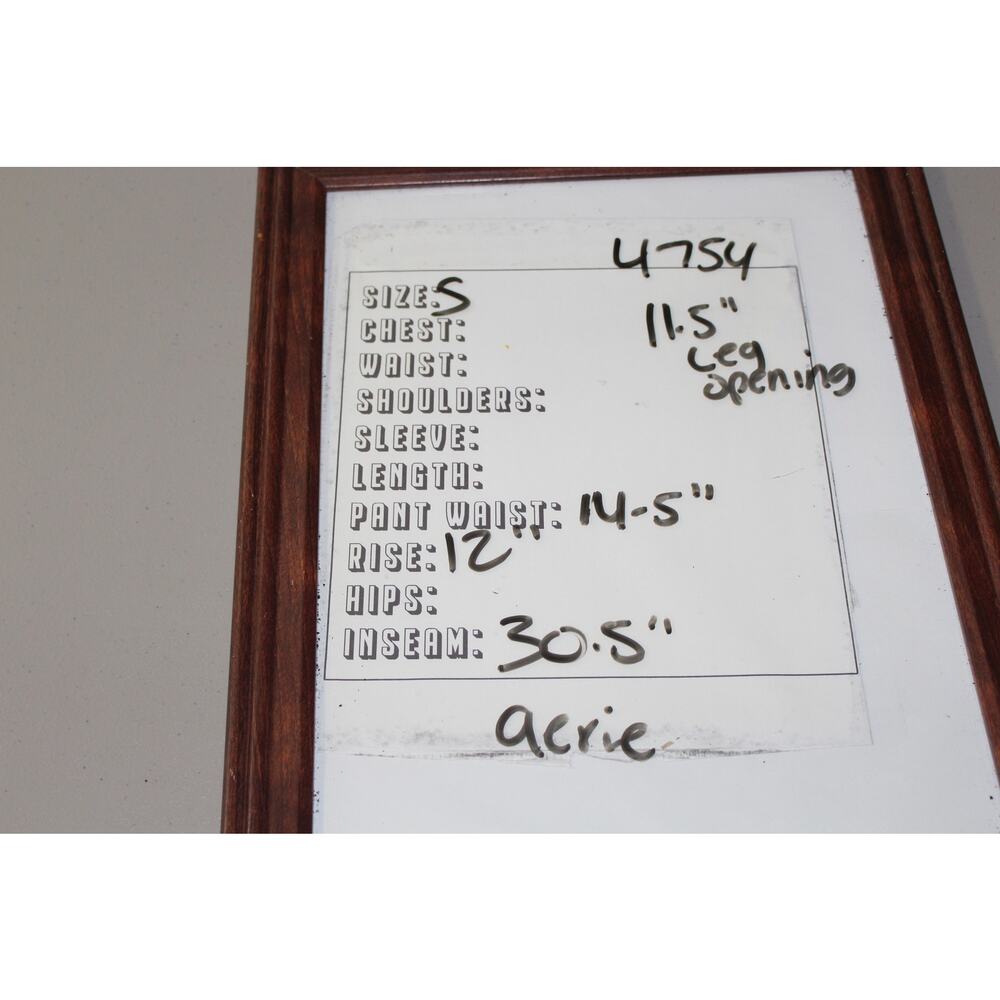 4754
SIZE: S
CHEST:
11.5"
Leg
opening
WAIST:
SHOULDERS:
SLEEVE:
LENGTH:
PANT WAIST: 14-5"
RISE: 12"
HIPS:
INSEAM: 30.5"
aerie